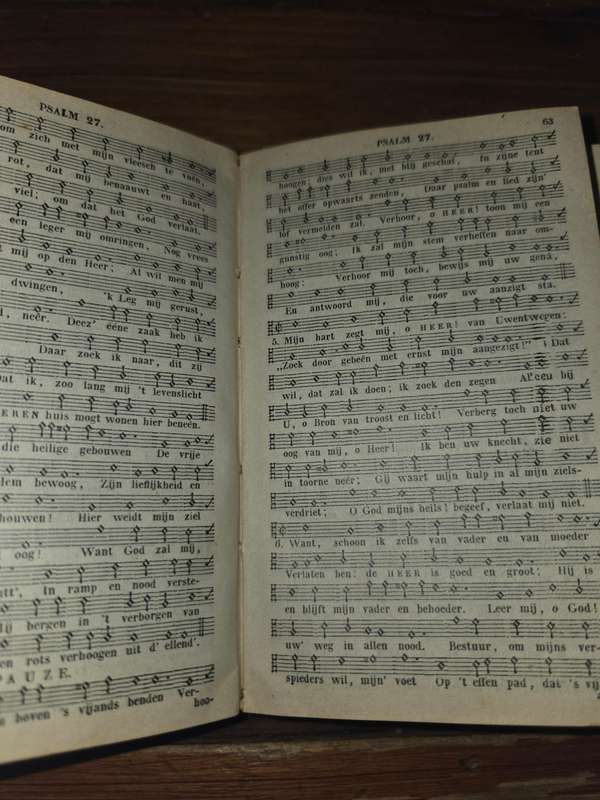 PSALM 27.
om zich met mijn vleesch te voên,
rot, dat mij benaauwt en haat,
viel; om dat het God verlaat.
een leger mij omringen, Nog vrees
mij op den Heer; Al wil men mij
dwingen, 'k Leg mij gerust,
neêr. Deez' ééne zaak heb ik
Daar zoek ik naar, dit zij
Dat ik, zoo lang mij 't levenslicht
EEREN huis mogt wonen hier beneên.
die heilige gebouwen De vrije
bewoog, Zijn lieflijkheid en
schouwen! Hier weidt mijn ziel
oog! Want God zal mij,
In ramp en nood verste-
Mij bergen in 't verborgen van
en rots verhoogen uit d' ellend'.
PAUZE.
boven 's vijands benden Ver-
hoo-
PSALM 27.
63
hoogen: dies wil ik, met blij geschal, In zijne tent
het offer opwaarts zenden, Daar psalm en lied zijn'
lof vermelden zal. Verhoor, o HEER! toon mij een
gunstig oog; ik zal mijn stem verheffen naar om-
hoog: Verhoor mij toch, bewijs mij uw genâ,
En antwoord mij, die voor uw aanzigt sta.
5. Mijn hart zegt mij, o HEER! van Uwentwegen:
„Zoek door gebeên met ernst mijn aangezigt!” Dat
wil, dat zal ik doen; ik zoek den zegen Alleen bij
U, o Bron van troost en licht! Verberg toch niet uw
oog van mij, o Heer! Ik ben uw knecht, zie niet
in toorne neêr; Gij waart mijn hulp in al mijn ziels-
verdriet; O God mijns heils! begeef, verlaat mij niet.
6. Want, schoon ik zelfs van vader en van moeder
Verlaten ben: de HEER is goed en groot; Hij is
en blijft mijn vader en behoeder. Leer mij, o God!
uw' weg in allen nood. Bestuur, om mijns ver-
spieders wil, mijn' voet Op 't effen pad, dat 's vij